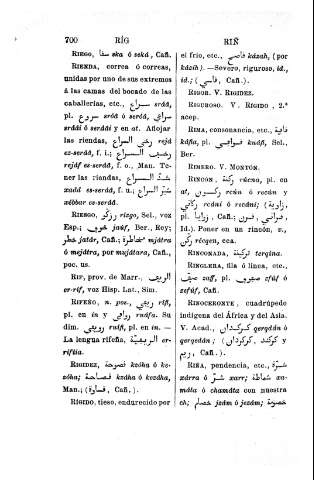 700 RÍG RIÑ
RIEGO, سقا ska ó seká, Cañ.
RIENDA, correa ó correas,
unidas por uno de sus extremos
á las camas del bocado de las
caballerías, etc., سراع srââ,
pl. سروع srâá ó serâá, سراعي
srââi ó serââi y en at. Aflojar
las riendas, رخى السراع rejá
es-serââ, f. i.; رخف السراع
rejáf es-serââ, f. o., Man. Te-
ner las riendas, شد السراع
xadd es-serââ, شبر السراع
xébbar es-serââ.
RIESGO, ريزگو riezgo, Sel., voz
Esp.; خوف jáuf, Ber., Rey;
خطر jatár, Cañ.; مخاطرة mjátra
ó mejátra, por mujátara, Cañ.,
poc. us.
RIF, prov. de Marr., الريف
er-rif, voz Hisp. Lat., Sim.
RIFEÑO, n. pos., ريفي rifi,
pl. en in y رواف ruáfa. Su
dim. رويفي ruifi, pl. en in. —
La lengua rifeña, الريفية er-
rifiia.
RIGIDEZ, قصوحة kzóha ó ke-
zóha; قصاحة kzáha ó kezáha,
Man.; (قساوة, Cañ.).
RÍGIDO, tieso, endurecido por
el frío, etc., قاصح kázah, (por
kásih).—Severo, riguroso, id.,
id.; (قاسي, Cañ.).
RIGOR. V. RIGIDEZ.
RIGUROSO. V. RÍGIDO, 2.ª
acep.
RIMA, consonancia, etc., قافية
káfia, pl. قوافي kuáfi, Sel.,
Ber.
RIMERO. V. MONTÓN.
RINCÓN, ركنة rúcna, pl. en
at, ركون rcún ó recún y
ركاني rcáni ó recáni; (زاوية,
pl. زوايا, Cañ.; قرنة, قراني,
Id.). Poner en un rincón, x,
ركن récqen, cca.
RINCONADA, تركينة tergina.
RINGLERA, fila ó línea, etc.,
صف saff, pl. صفوف sfúf ó
zefúf, Cañ.
RINOCERONTE, cuadrúpedo
indígena del África y del Asia.
V. Acad., كركدان qerqdán ó
qerqedán; (كركدان, كركند y
ريم, Cañ.).
RIÑA, pendencia, etc., شرة
xárra ó شر xarr; شماطة xa-
máta ó chamáta con nuestra
ch; خصام jzám ó jezám; خصومة